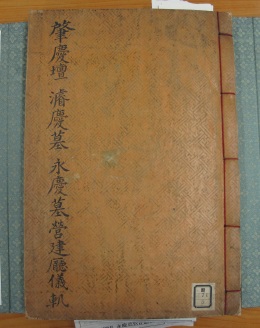 肇慶壇 濬慶墓 永慶墓營建廳儀軌